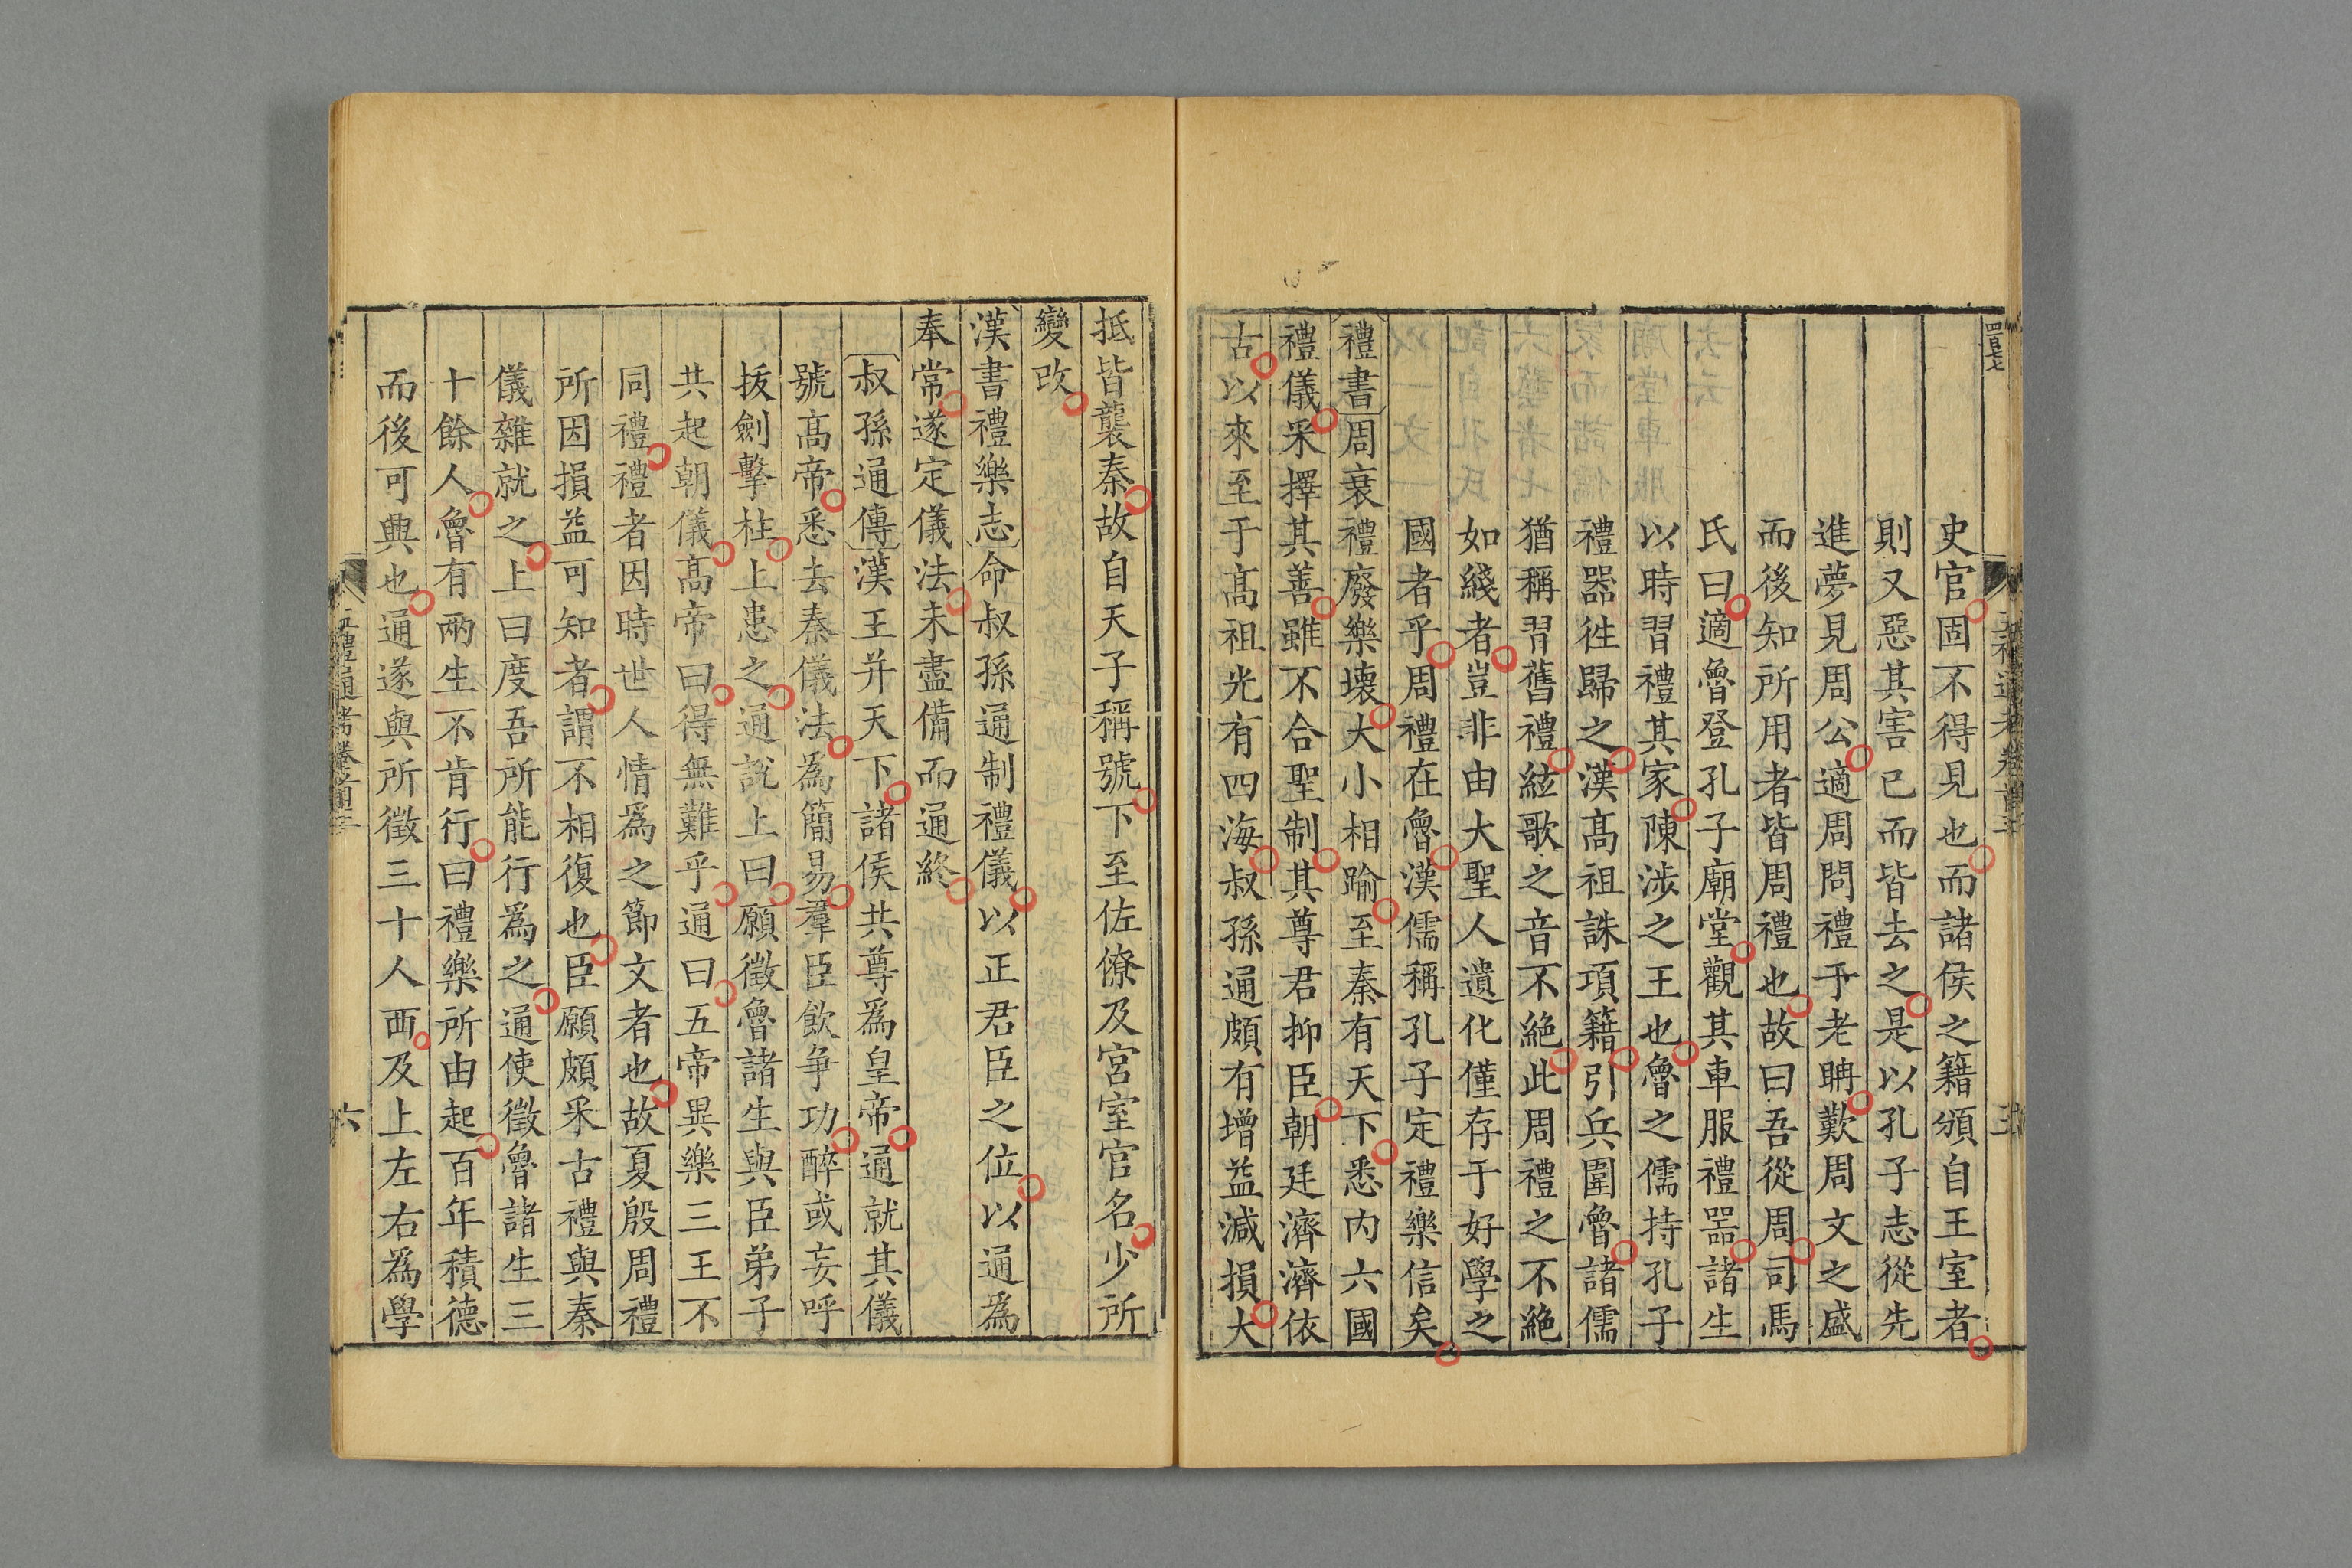 史官固不得見也而諸侯之籍頒自王室者
則又惡其害已而皆去之是以孔子志從先
進夢見周公適周問禮予老聃歎周文之盛
而後知所用者皆周禮也故曰吾從周司馬
氏曰適魯登孔子廟堂觀其車服禮噐諸生
以時習禮其家陳涉之王也魯之儒持孔子
禮噐徃歸之漢髙祖誅項籍引兵圍魯諸儒
猶稱習舊禮絃歌之音不絶此周禮之不絶
如綫者豈非由大聖人遺化僅存于好學之
國者乎周禮在魯漢儒稱孔子定禮樂信矣
禮書周衰禮廢樂壊大小相踰至秦有天下悉内六國
禮儀采擇其善雖不合聖制其尊君抑臣朝廷濟濟依
古以來至于髙祖光有四海叔孫通頗有增益減損大
抵皆襲秦故自天子稱號下至佐僚及宮室官名少所
變改
漢書禮樂志命叔孫通制禮儀以正君臣之位以通為
奉常遂定儀法未盡備而通終
叔孫通傳漢王并天下諸侯共尊爲皇帝通就其儀
號髙帝悉去秦儀法為簡易羣臣飲争功醉或妄呼
拔劍擊柱上患之通說上曰願徵魯諸生與臣弟子
共起朝儀髙帝曰得無難乎通曰五帝異樂三王不
同禮禮者因時世人情爲之節文者也故夏殷周禮
所因損益可知者謂不相復也臣願頗采古禮與秦
儀雜就之上曰度吾所能行爲之通使徵魯諸生三
十餘人魯有兩生不肯行曰禮樂所由起百年積德
而後可興也通遂與所徵三十人西及上左右爲學
六